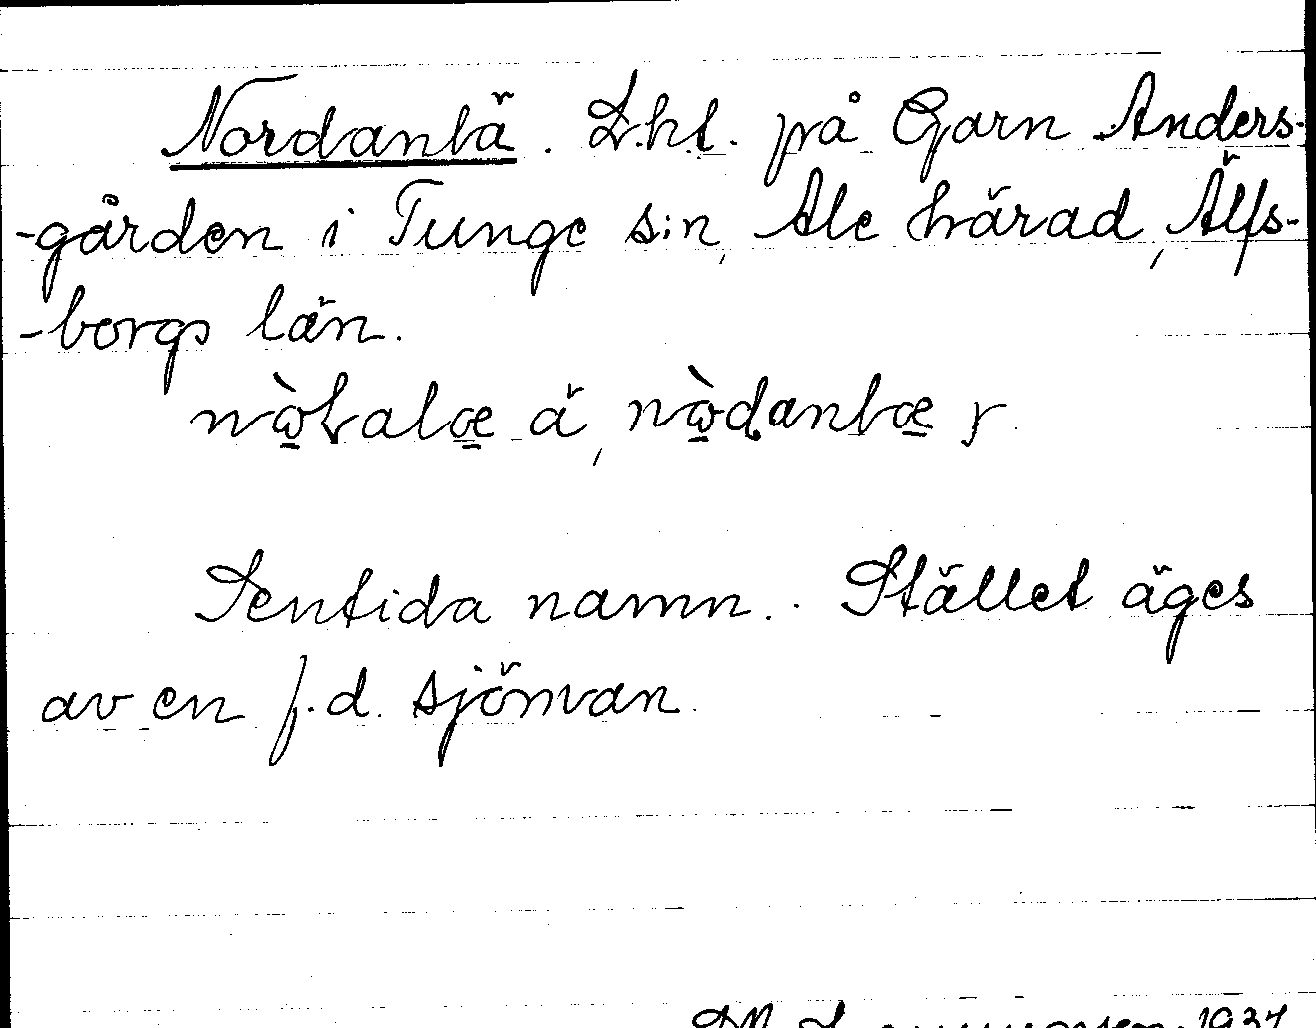 Nordanlä. Lht. på Garn Anders-
-gården i Tunge s:n, Ale härad, Älfs-
-borgs län.
ä,
Sentida namn. Stället äges
av en f.d. sjöman.
1934